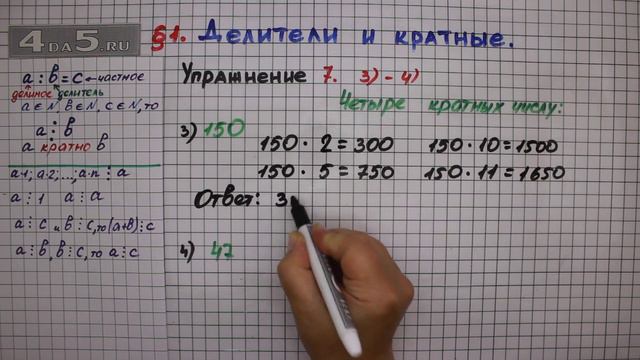 4DA5.RU
§1. Делители и кратные.
a : b = c ← частное
делимое делитель
a ∈ N, b ∈ N, c ∈ N, то
a ⋮ b
a кратно b
a·1; a·2; ...; a·n ⋮ a
a ⋮ 1 a ⋮ a
a ⋮ c и b ⋮ c, то (a+b) ⋮ c
a ⋮ b, b ⋮ c, то a ⋮ c
Упражнение 7. 3) - 4)
Четыре кратных числу:
3) 150
150 · 2 = 300 150 · 10 = 1500
150 · 5 = 750 150 · 11 = 1650
Ответ: 3
4) 47